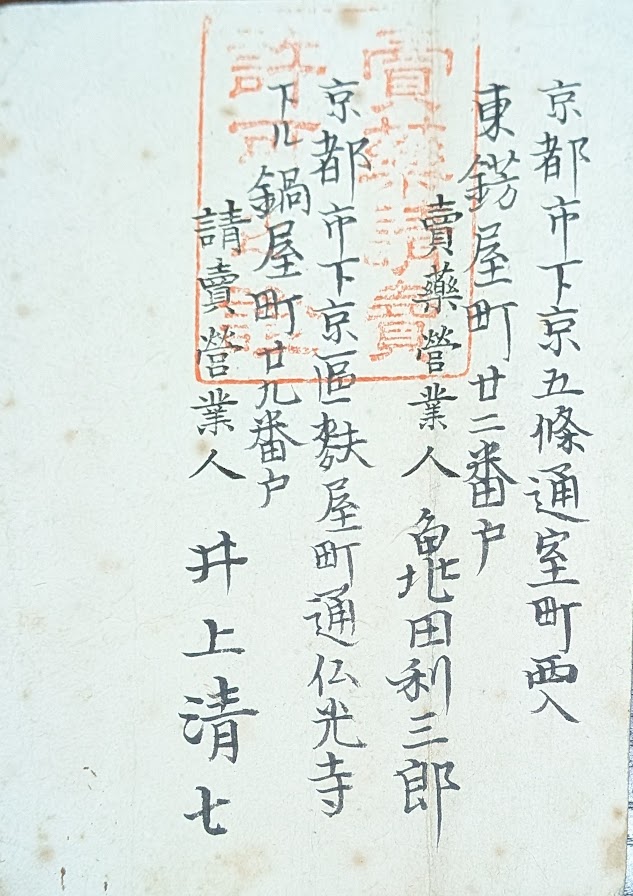 京都市下京五條通室町西入
東錺屋町廿二番戸
賣藥營業人 亀田利三郎
京都市下京區麩屋町通仏光寺
下ル鍋屋町廿九番戸
請賣營業人 井上清七
賣藥請賣
許可